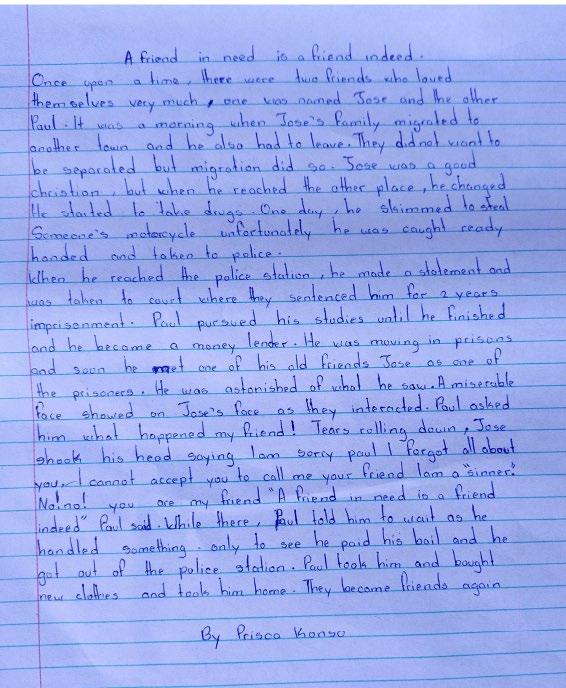 A friend in need is a friend indeed.
Once upon a time, there were two friends who loved
themselves very much, one was named Jose and the other
Paul. It was a morning when Jose's family migrated to
another town and he also had to leave. They did not want to
be separated but migration did so. Jose was a good
christian, but when he reached the other place, he changed
He started to take drugs. One day, he skimmed to steal
Someone's motorcycle unfortunately he was caught ready
handed and taken to police.
When he reached the police station, he made a statement and
was taken to court where they sentenced him for 2 years
imprisonment. Paul pursued his studies until he finished
and he became a money lender. He was moving in prisons
and soon he met one of his old friends Jose as one of
the prisoners. He was astonished of what he saw. A miserable
face showed on Jose's face as they interacted. Paul asked
him what happened my friend! Tears rolling down, Jose
shook his head saying Iam sorry paul I forgot all about
you, I cannot accept you to call me your friend Iam a "sinner".
No! no! you are my friend "A friend in need is a friend
indeed" Paul said. While there, Paul told him to wait as he
handled something. only to see he paid his bail and he
got out of the police station. Paul took him and bought
new clothes and took him home. They became friends again
By Prisca Konso